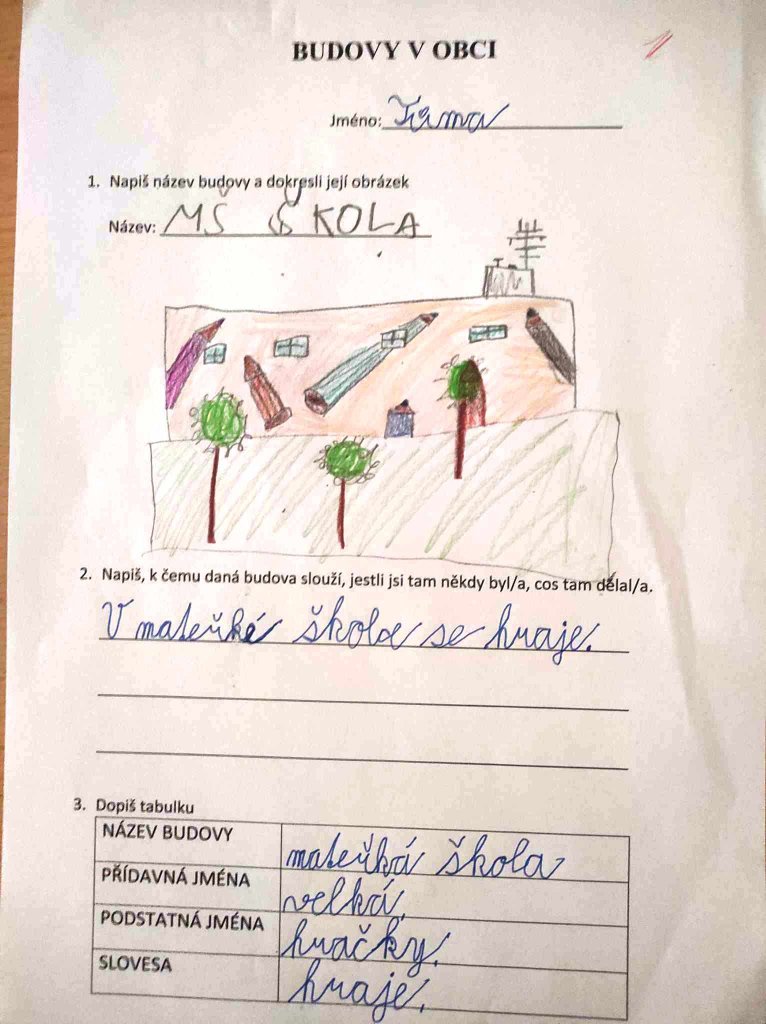 BUDOVY V OBCI
1
Jméno:
1. Napiš název budovy a dokresli její obrázek
Název: MŠ ŠKOLA
2. Napiš, k čemu daná budova slouží, jestli jsi tam někdy byl/a, cos tam dělal/a.
V mateřké škola se hraje.
3. Dopiš tabulku
NÁZEV BUDOVY mateřká škola
PŘÍDAVNÁ JMÉNA velká.
PODSTATNÁ JMÉNA hračky.
SLOVESA hraje.